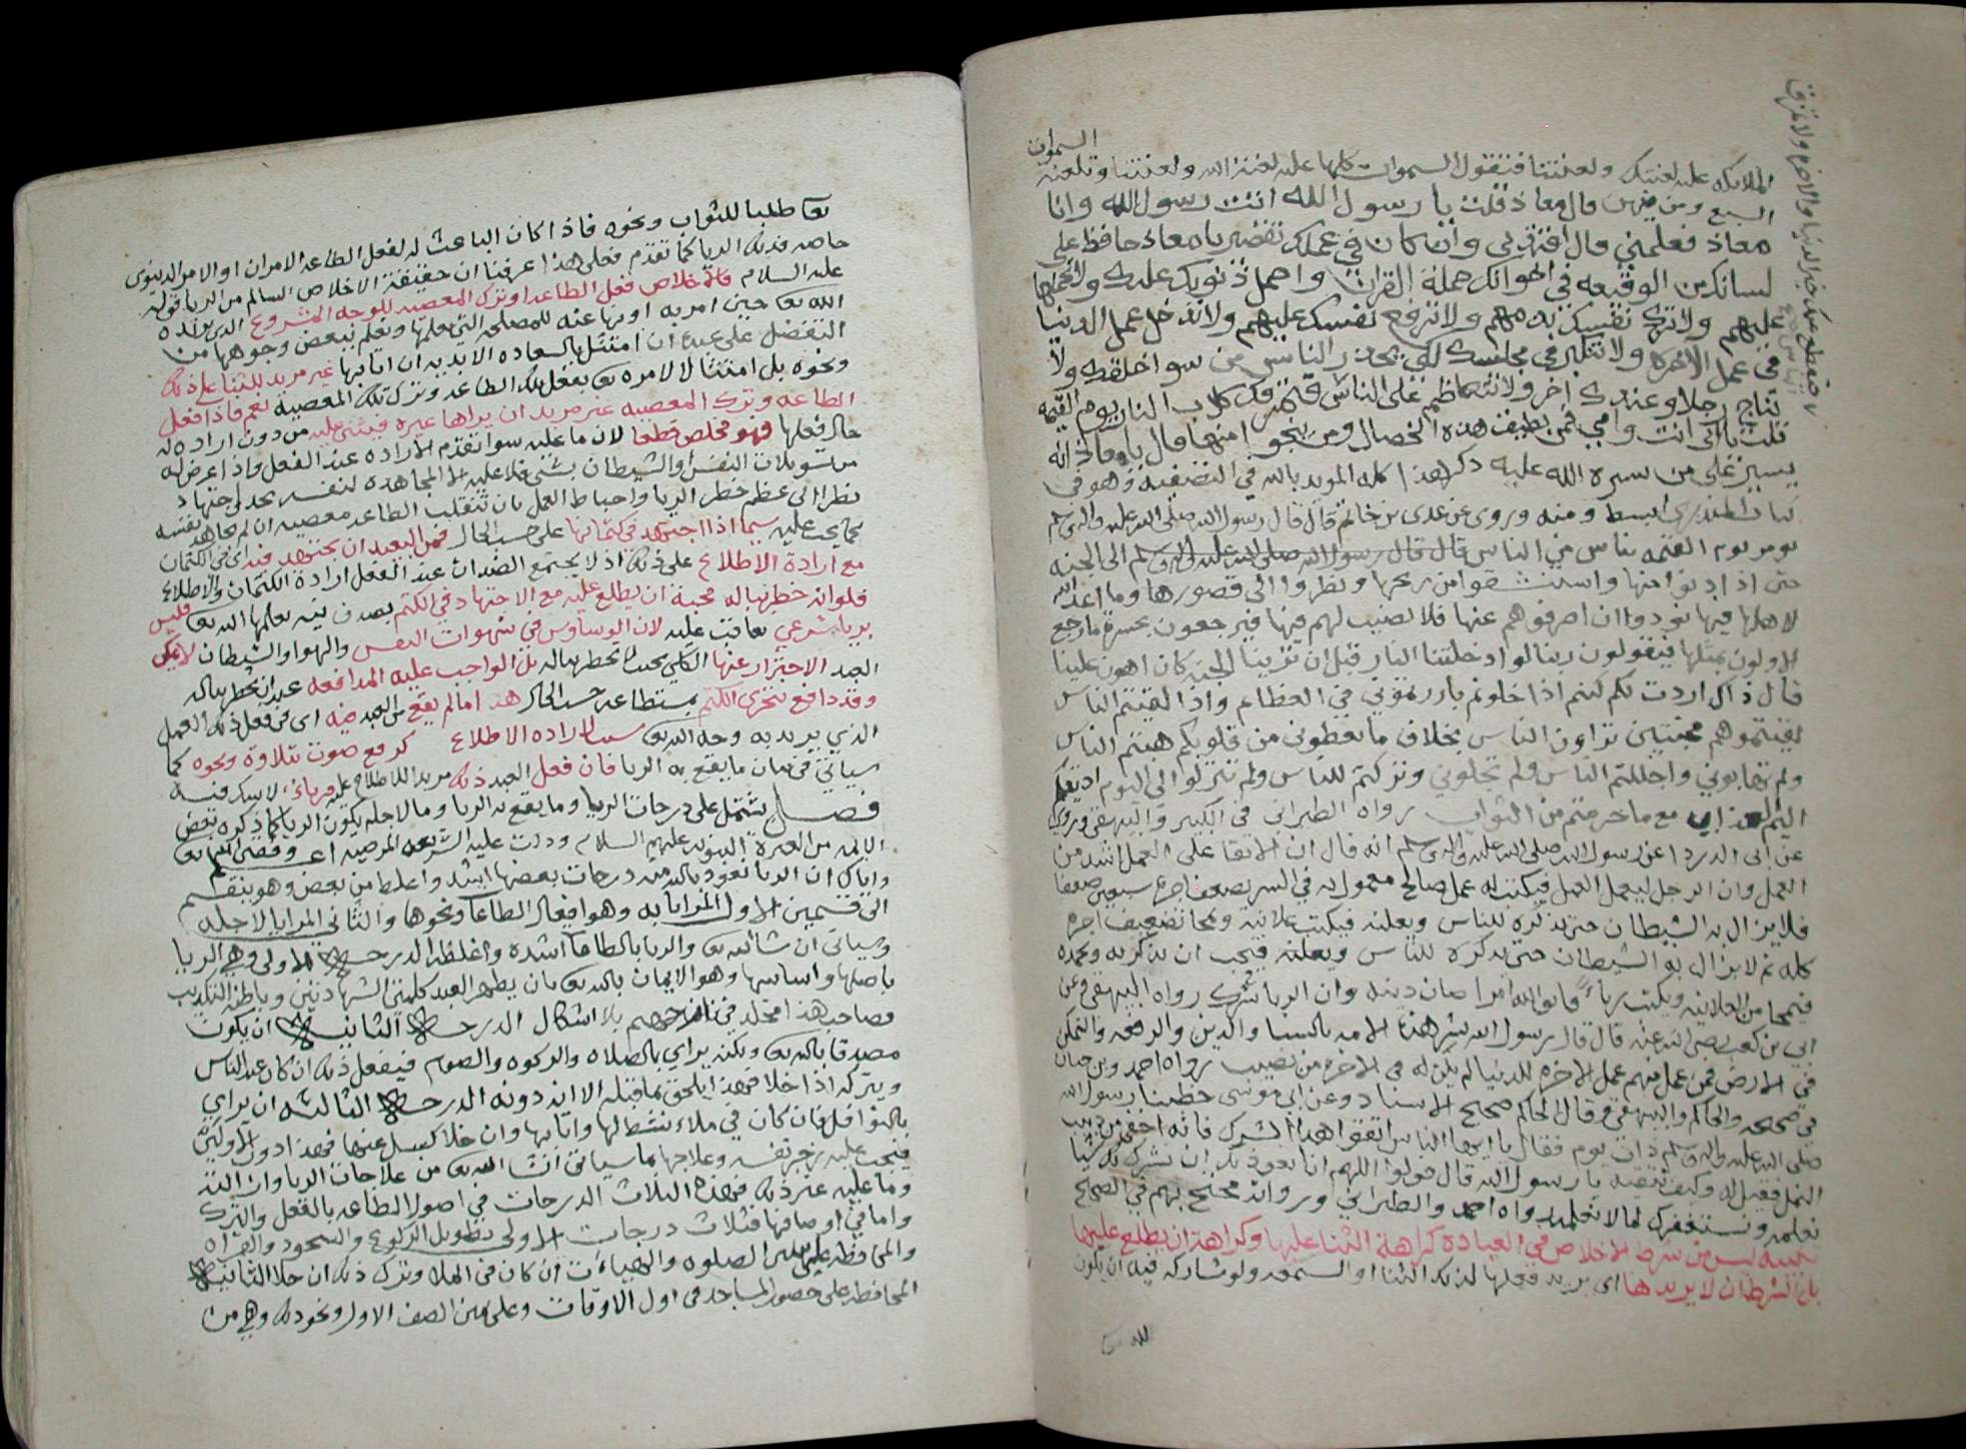 الملائكة عليه لعنتك ولعنتنا فتقول السموات كلها عليه لعنة الله ولعنتنا وتلعنه السموات
السبع ومن فيهن قال معاذ قلت يا رسول الله انت رسول الله وانا
معاذ فعلمني قال اقتد بي وان كان في عملك تقصير يا معاذ حافظ على
لسانك من الوقيعه في اخوانك حملة القران واحمل ذنوبك عليك ولا تحملها
عليهم ولا تزك نفسك بذمهم ولا ترفع نفسك عليهم ولا تدخل عمل الدنيا
في عمل الاخره ولا تتكبر في مجلسك لكي يحذر الناس من سوا خلقك ولا
تناج رجلا وعندك اخر ولا تتعاظم على الناس
ولا تمزق الناس فتمزقك كلاب النار يوم القيمه
قلت بابي انت وامي فمن يطيق هذه الخصال ومن ينجو منها قال يا معاذ انه
يسير على من يسره الله عليه ذكر هذا كله المويد بالله في التصفية وهو في
ومنه وروي عن عدي بن حاتم قال قال رسول الله صلى الله عليه واله وسلم
يومر يوم القيمه بناس من الناس الى الجنه
حتى اذا دنوا منها واستنشقوا من ريحها ونظروا الى قصورها وما اعد الله
لاهلها فيها نودوا ان اصرفوهم عنها فلا نصيب لهم فيها فيرجعون بحسرة ما رجع
الاولون بمثلها فيقولون ربنا لو ادخلتنا النار قبل ان ترينا الجنه كان اهون علينا
قال ذاك اردت بكم كنتم اذا خلوتم بارزتموني في العظايم واذا لقيتم الناس
لقيتموهم مخبتين تراون الناس بخلاف ما تعطوني من قلوبكم هبتم الناس
ولم تهابوني واجللتم الناس ولم تجلوني وتركتم للناس ولم تتركوا لي اليوم اذيقكم
اليم العذاب مع ما حرمتم من الثواب رواه الطبراني في الكبير والبيهقي وروي
عن ابي الدردا عن رسول الله صلى الله عليه واله وسلم انه قال ان الاتقا على العمل اشد من
العمل وان الرجل ليعمل العمل فيكتب له عمل صالح معمول به في السر يضعف اجره سبعين ضعفا
فلا يزال به الشيطان حتى يذكره للناس ويعلنه فيكتب علانية ويمحا تضعيف اجره
كله ثم لا يزال به الشيطان حتى يذكره للناس ويعلنه فيحب ان يذكر به ويحمده
فيمحا من العلانيه ويكتب رياء فاتقوا الله امرا صان دينه وان الريا شرك رواه البيهقي وعن
ابي بن كعب رضي الله عنه قال قال رسول الله بشر هذه الامه بالسنا والدين والرفعه والتمكن
في الارض فمن عمل منهم عمل الاخره للدنيا لم يكن له في الاخرة من نصيب رواه احمد وبن حبان
في صحيحه والحاكم والبيهقي وقال الحاكم صحيح الاسناد وعن ابي موسى خطبنا رسول الله
صلى الله عليه واله وسلم ذات يوم فقال يا ايها الناس اتقوا هذا الشرك فانه اخفى من دبيب
النمل فقيل له وكيف نتقيه يا رسول الله قال قولوا اللهم انا نعوذ بك ان نشرك بك شيئا
نعلمه ونستغفرك لما لا نعلمه رواه احمد والطبراني ورواته محتج بهم في الصحيح
تنبيه ليس من شرط الاخلاص في العبادة كراهة الثنا عليها وكراهة ان يطلع عليها
بل الشرط ان لا يريدها اي يريد فعلها لذلك الثنا او السمعه ولو شاركه فيه ان يكون
لله تعالى
تعالى طلبا للثواب ونحوه فاذا كان الباعث له لفعل الطاعه الامران او الامر الدنيوي
خاصه فذلك الريا كما تقدم فعلى هذا عرفنا ان حقيقة الاخلاص السالم من الريا قوله
عليه السلام فالاخلاص فعل الطاعه او ترك المعصيه للوجه المشروع الذي يريده
الله تعالى حين امر به او نها عنه للمصلحه التي يعلمها ونعلم ببعض وجوهها من
التفضل على عبده ان امتثل بالسعاده الابديه ان اتا بها غير مريد للثنا على ذلك
ونحوه بل امتثالا لامره تعالى بفعل تلك الطاعه وترك تلك المعصية نعم فاذا فعل
الطاعه وترك المعصيه غير مريد ان يراها غيره فيثني عليه من دون ارادة له
حال فعلها فهو مخلص قطعا لان ما عليه سوا تقدم الاراده عند الفعل فاذا عرض له
من تسويلات النفس او الشيطان بشي فلا عليه الا المجاهده لنفسه بحد
نظرا الى عظم خطر الريا واحباط العمل بان تنقلب الطاعه معصيه ان لم يجاهد نفسه
كما يجب عليه سيما اذا اجتهد في كتمانها على حسب الحال فمن البعيد ان يجتهد فيه اي في الكتمان
مع ارادة الاطلاع على ذلك اذ لا يجتمع الضدان عند الفعل ارادة الكتمان والاطلاع
فلو انه خطر بباله محبة ان يطلع عليه مع الاجتهاد في الكتم بصدق نيه يعلمها الله تعالى فليس
بريا شرعي يعاقب عليه لان الوساوس في شهوات النفس والهوا والشيطان لا يمكن
العبد الاحتراز عنها الكلي بحيث لا تخطر بباله بل الواجب عليه المدافعه عند ان يخطر بباله
وقد دافع بتحري الكتم بمستطاعه حسب الحال هذا ما لم يقع من العبد فيه اي في فعل ذلك العمل
الذي يريد به وجه الله تعالى سببا لارادة الاطلاع كرفع صوت بتلاوة ونحوه كما
سياتي في بيان ما يقع به الريا فان فعل العبد ذلك مريدا للاطلاع عليه فرياء لا شك فيه
فصل يشتمل على درجات الريا وما يقع به الريا وما لاجله يكون الريا كما ذكره بعض
الائمه من العترة النبويه عليهم السلام ودلت عليه الشريعه المرضيه اعلم وفقني الله تعالى
واياك ان الريا نعوذ بالله منه درجات بعضها اشد واغلظ من بعض وهو ينقسم
الى قسمين الاول المرايا به وهو افعال الطاعات ونحوها والثاني المرايا لاجله
وسياتي ان شا الله تعالى والريا بالطاعات اشده واغلظه الدرجة الاولى وهي الريا
باصلها واساسها وهو الايمان بالله تعالى بان يظهر العبد كلمتي الشهادتين وباطنه التكذيب
فصاحب هذا مخلد في نار جهنم بلا اشكال الدرجة الثانية ان يكون
مصدقا بالله تعالى ولكنه يراي بالصلاه والزكوه والصوم فيفعل ذلك ان كان عند الناس
ويتركه اذا خلا فهذا يلحق بما قبله الا انه دونه الدرجة الثالثه ان يراي
بالنوافل فان كان في ملاء نشط لها واتا بها وان خلا كسل عنها فهذا دون الاولين
فيجب عليه زجر نفسه وعلاجها بما سياتي ان شا الله تعالى من علاجات الريا
وما عليه غير ذلك فهذه الثلاث الدرجات في اصول الطاعه بالفعل والترك
واما في اوصافها فثلاث درجات الاولى تطويل الركوع والسجود والقراه
والمحافظه على الصلوه والهيات ان كان في الملا وترك ذلك ان خلا الثانية
المحافظه على حضور المساجد في اول الاوقات وعلى يمين الصف الاول ونحو ذلك وهي من